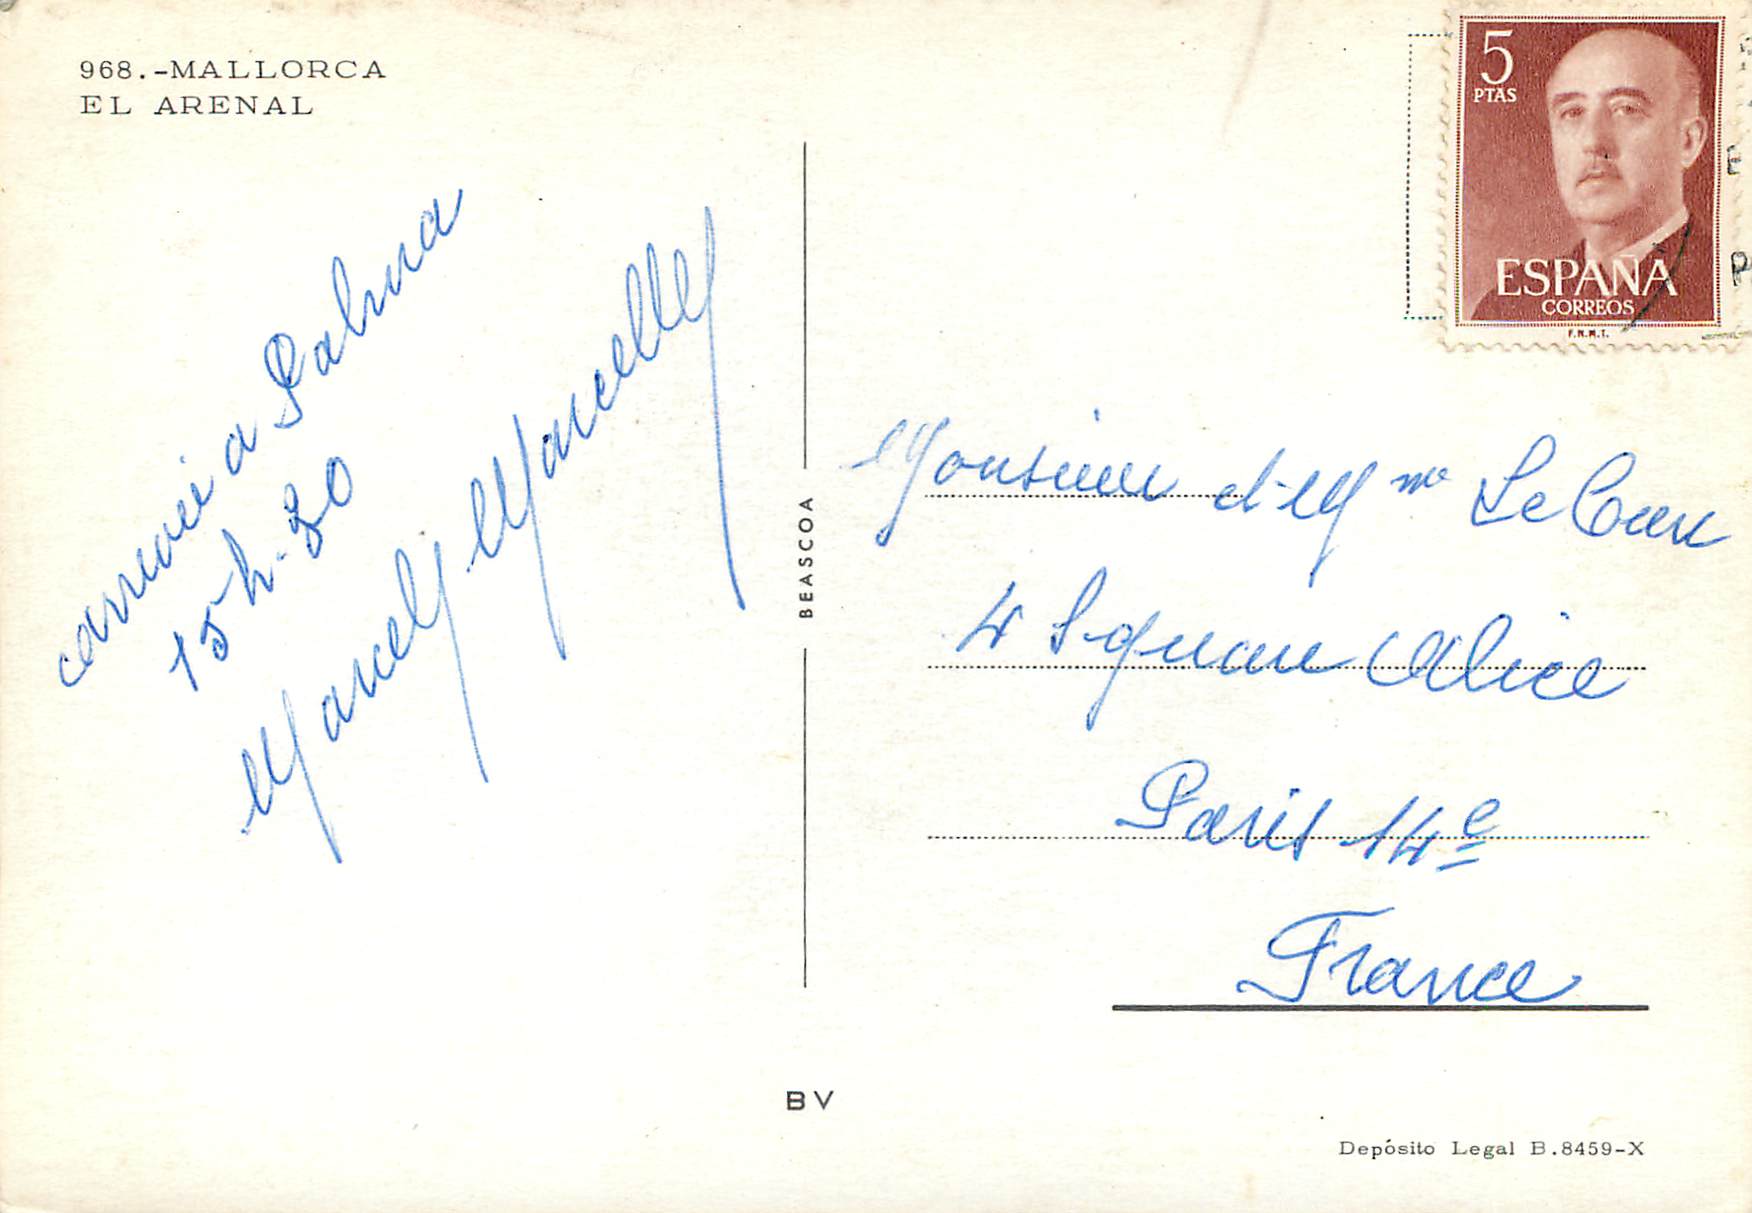 968.-MALLORCA
EL ARENAL
5
PTAS
ESPAÑA
CORREOS
F.N.M.T.
arrivée a Palma
15h.30
Marcel Marcelle
BEASCOA
Monsieur et Mme Le Cœur
4 Square Alice
Paris 14e
France
BV
Depósito Legal B.8459-X